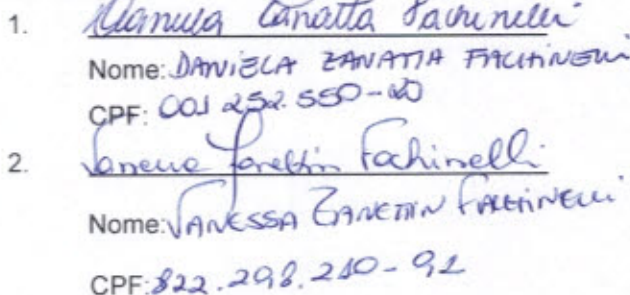 1. Daniela Zanatta Fachinelli
Nome: DANIELA ZANATTA FACHINELLI
CPF: 001 252.550-20
2. Vanessa Zanettin Fachinelli
Nome: VANESSA ZANETTIN FACHINELLI
CPF: 822.298.210-91